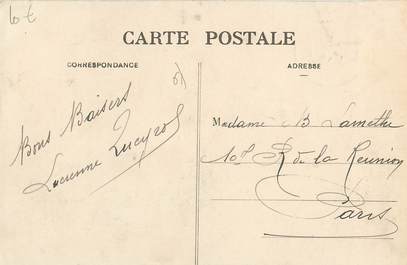 6€
CARTE POSTALE
CORRESPONDANCE
ADRESSE
Bons Baisers
Lucienne
Madame B Lamethe
R de la Reunion
Paris